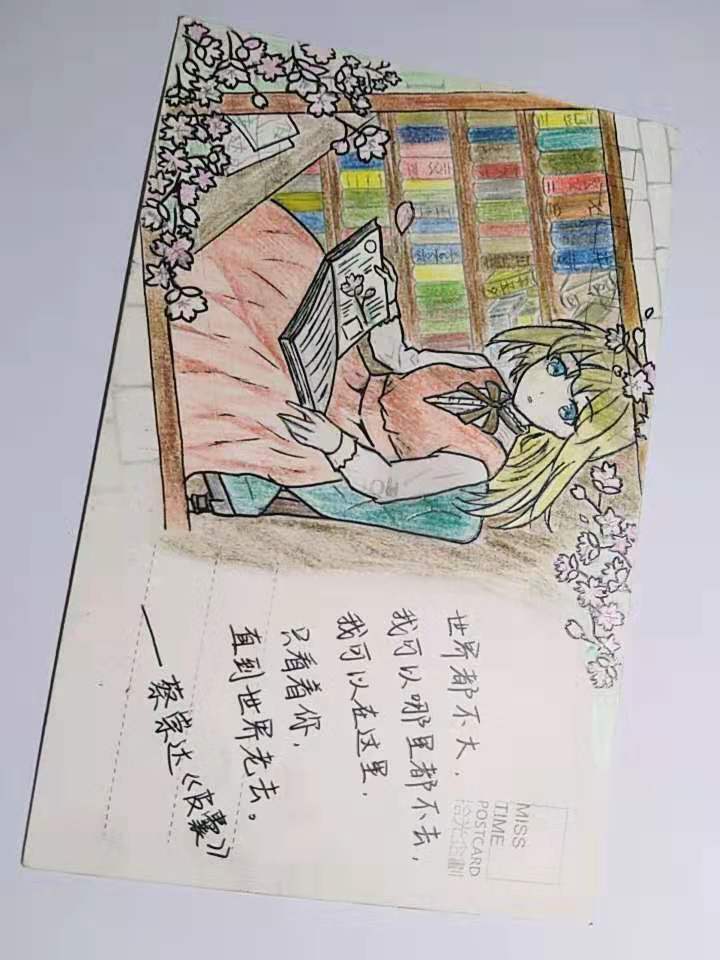 MISS
TIME
POSTCARD
世界都不大，
我可以哪里都不去，
我可以在这里，
只看着你，
直到世界老去。
——蔡崇达《皮囊》